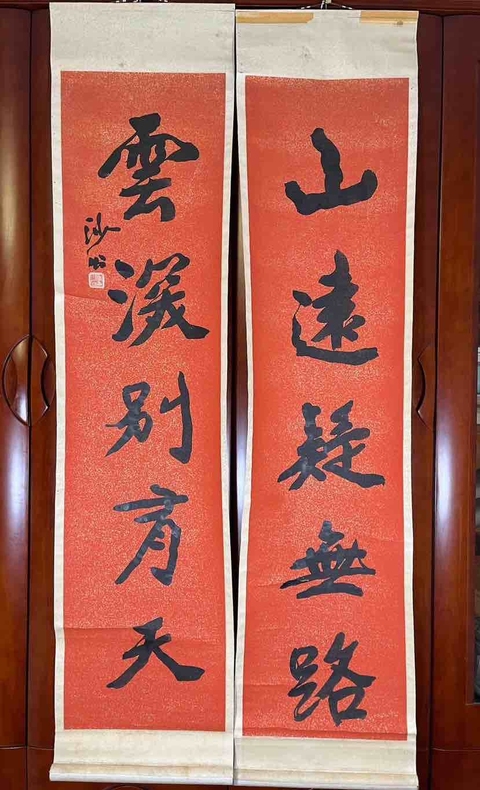 山遠疑無路
雲深別有天
沙